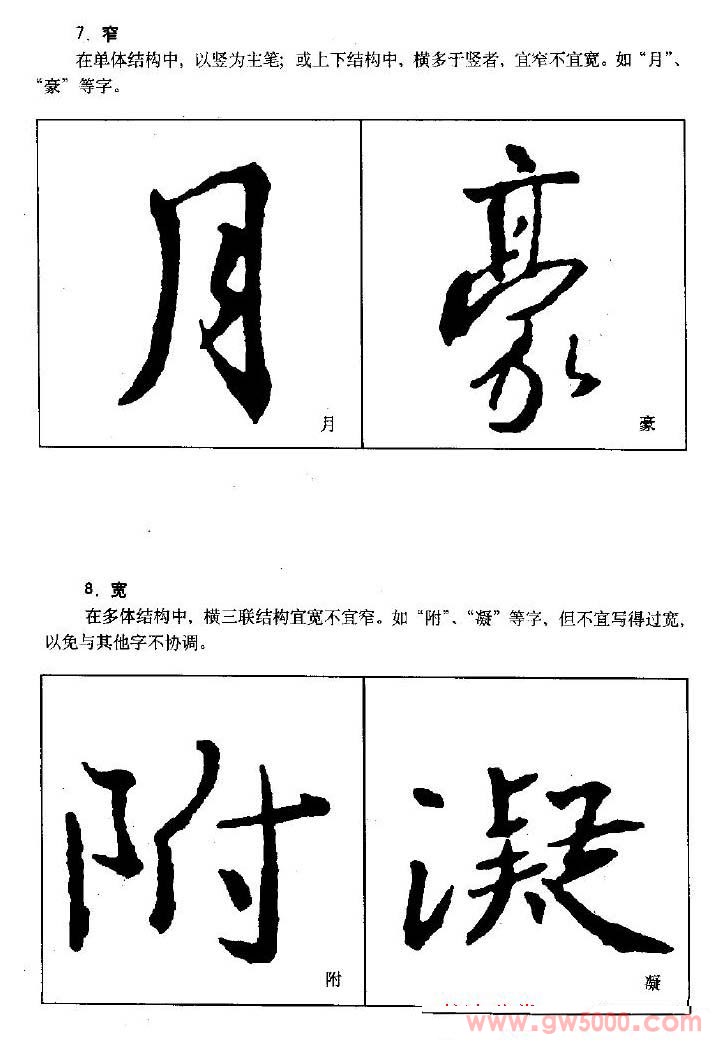 7. 窄
在单体结构中，以竖为主笔；或上下结构中，横多于竖者，宜窄不宜宽。如“月”、
“豪”等字。
月 豪
月 豪
8. 宽
在多体结构中，横三联结构宜宽不宜窄。如“附”、“凝”等字，但不宜写得过宽，
以免与其他字不协调。
附 凝
附 凝
www.gw5000.com